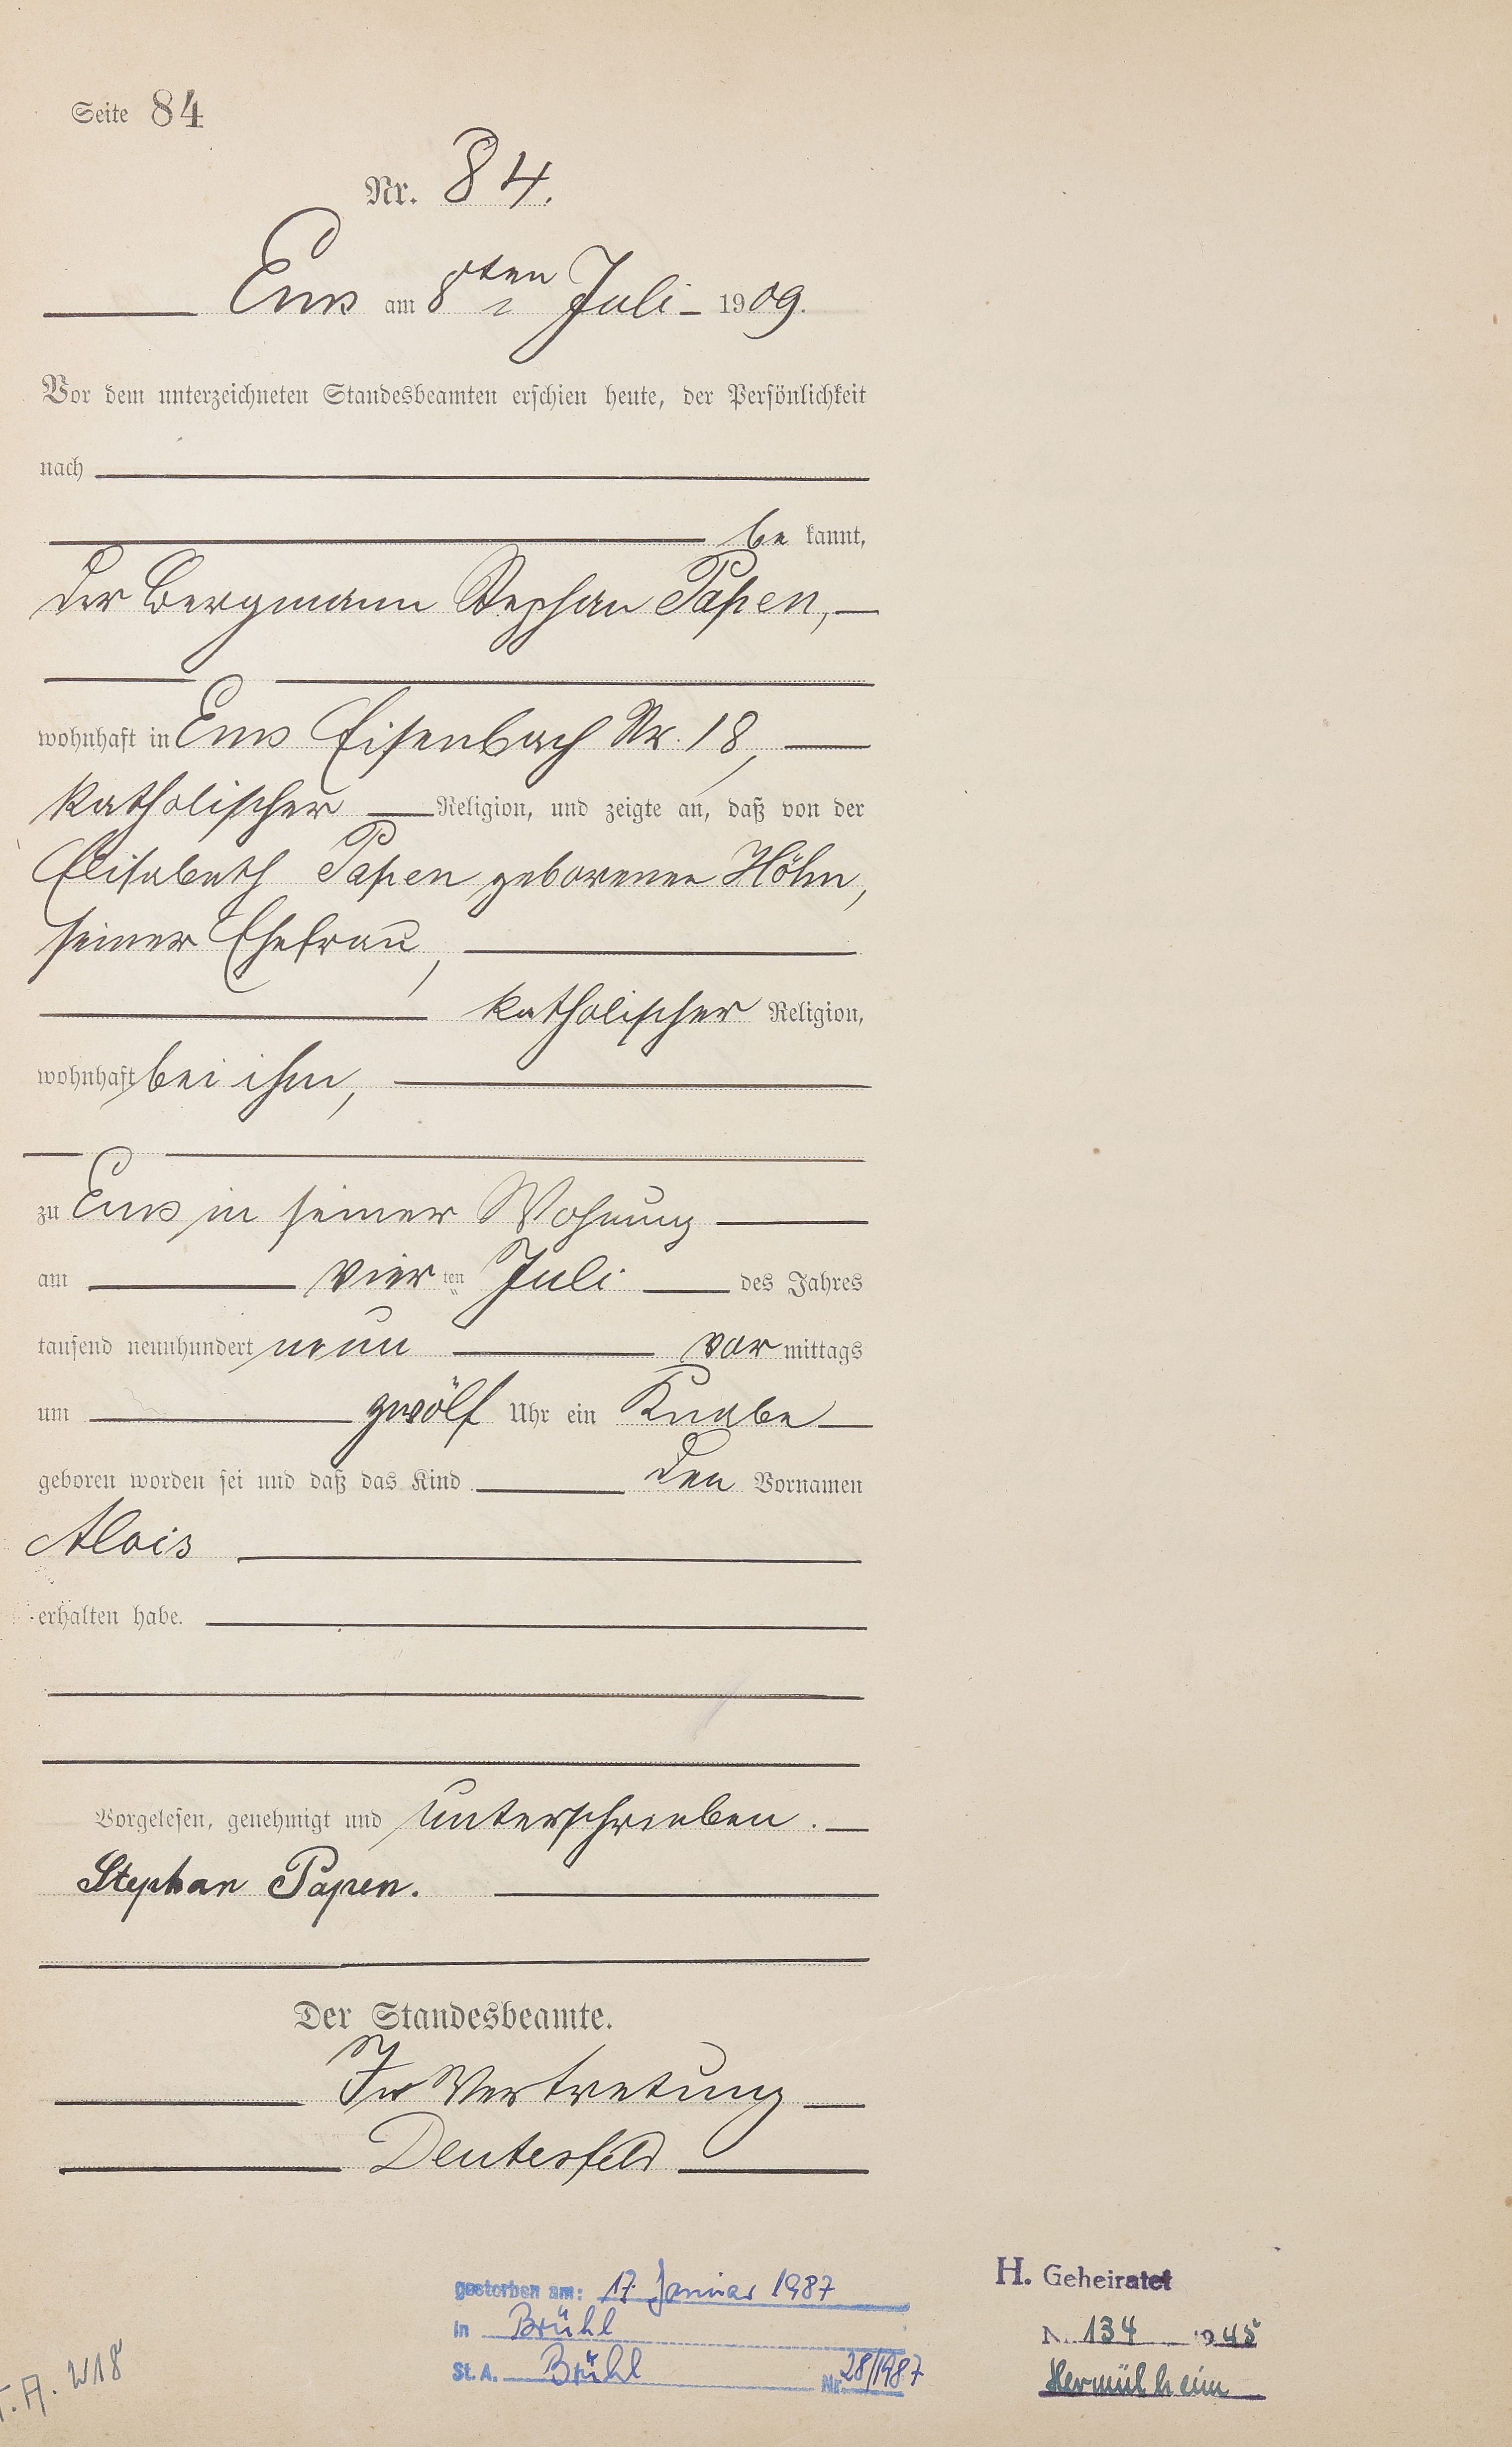 Seite 84
Nr. 84.
Ems am 8ten Juli 1909.
Vor dem unterzeichneten Standesbeamten erschien heute, der Persönlichkeit
nach
be kannt,
der Bergmann Stephan Papen,
wohnhaft in Ems Eisenbach Nr. 18,
katholischer Religion, und zeigte an, daß von der
Elisabeth Papen geborenen Höhn,
seiner Ehefrau,
katholischer Religion,
wohnhaft bei ihm,
zu Ems in seiner Wohnung
am vier ten Juli des Jahres
tausend neunhundert neun vor mittags
um zwölf Uhr ein Knabe
geboren worden sei und daß das Kind den Vornamen
Alois
erhalten habe.
Vorgelesen, genehmigt und unterschrieben.
Stephan Papen.
Der Standesbeamte.
In Vertretung
Deutesfeld
gestorben am: 17. Januar 1987
in Brühl
St. A. Brühl Nr. 28/1987
H. Geheiratet
N. 134 1945
Hermülheim